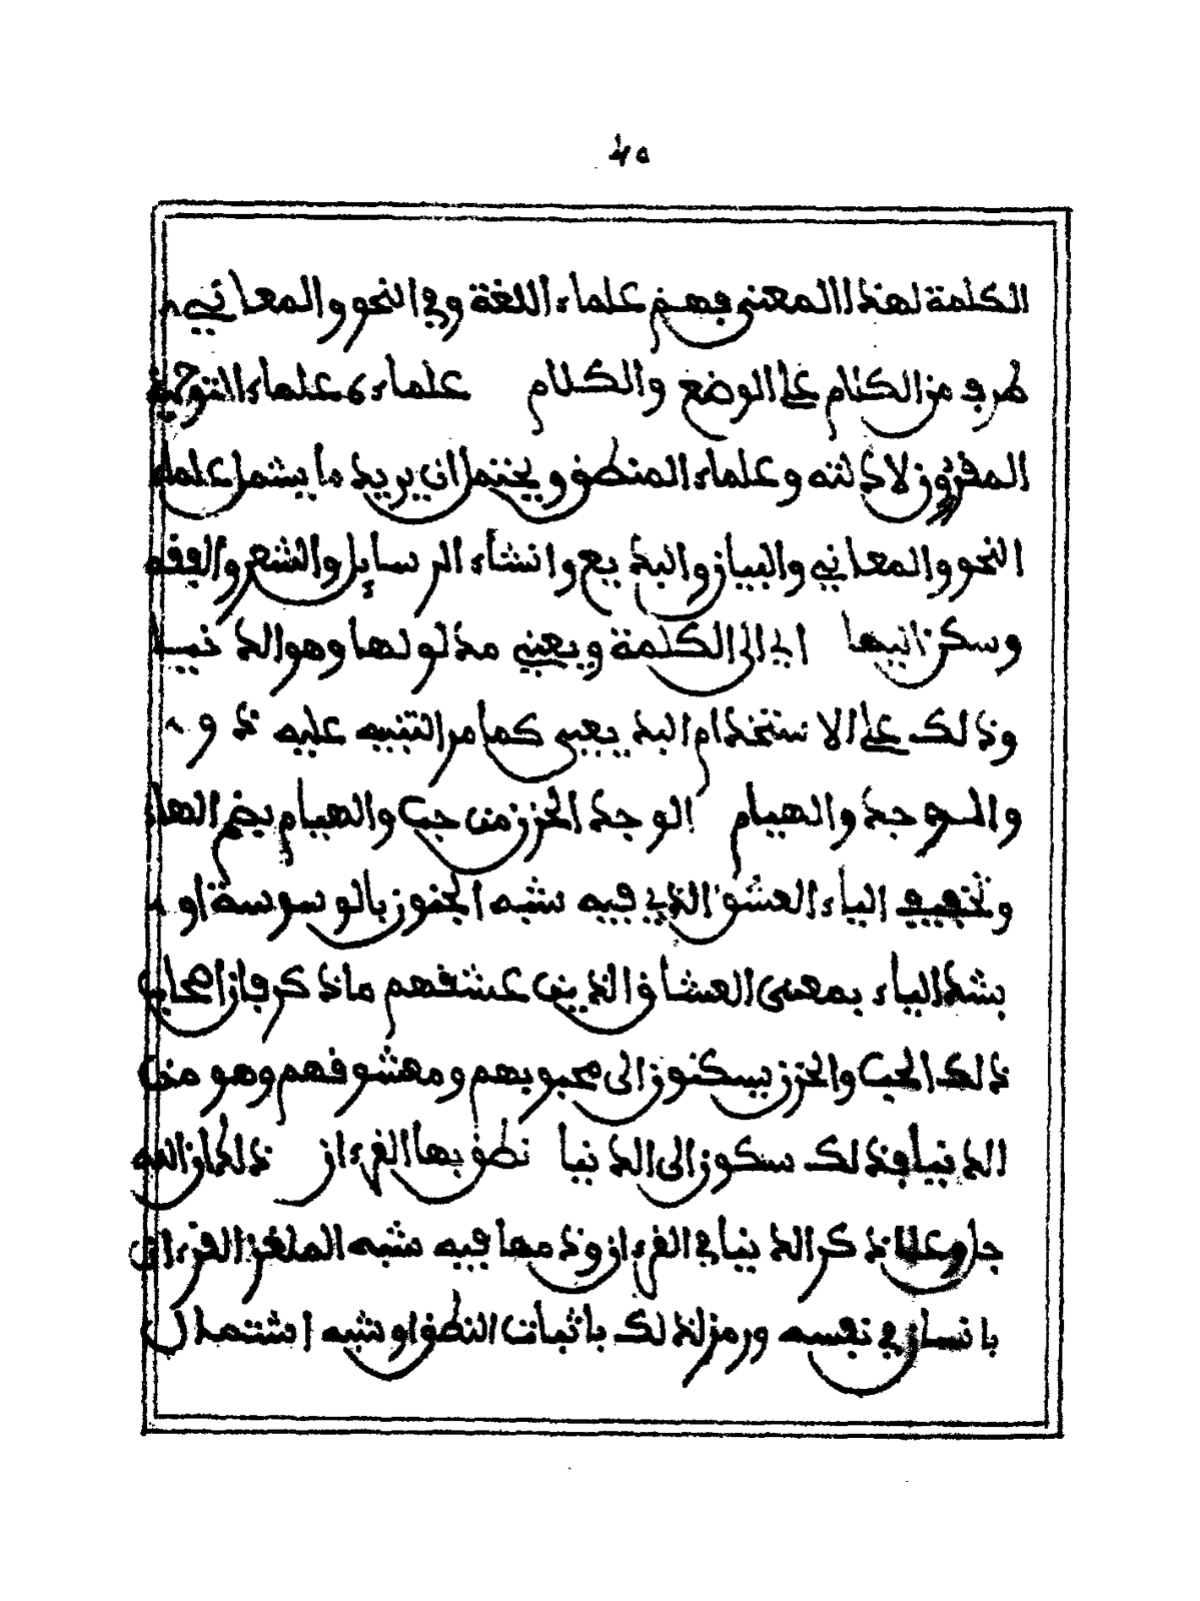 الكلمة لهذا المعنى فهم علماء اللغة وفي النحو والمعاني
طرف من الكلام على الوضع والكلام علماء علماء التوحيد
المقررون لادلته وعلماء المنطق ويحتمل ان يريد ما يشمل علماء
النحو والمعاني والبيان والبديع وانشاء الرسايل والشعر والفقه
وسكن اليها اي الى الكلمة ويعني مدلولها وهو الدنيا
وذلك على الاستخدام البديعي كما مر التنبيه عليه ذو
والوجد والهيام الوجد الحزن من حب والهيام بضم الهاء
وتخفيف الياء العشق الذي فيه شبه الجنون بالوسوسة او
بشد الياء بمعنى العشاق الذين عشقهم ما ذكر فان اصحاب
ذلك الحب والحزن يسكنون الى محبوبهم ومعشوقهم وهو من
الدنيا فذلك سكون الى الدنيا نطق بها القرءان ذلك ان الله
جل وعلا ذكر الدنيا في القرءان وذمها فيه شبه الملغز القرءان
بانسان في نفسه ورمز لذلك باثبات النطق او شبه اشتمال